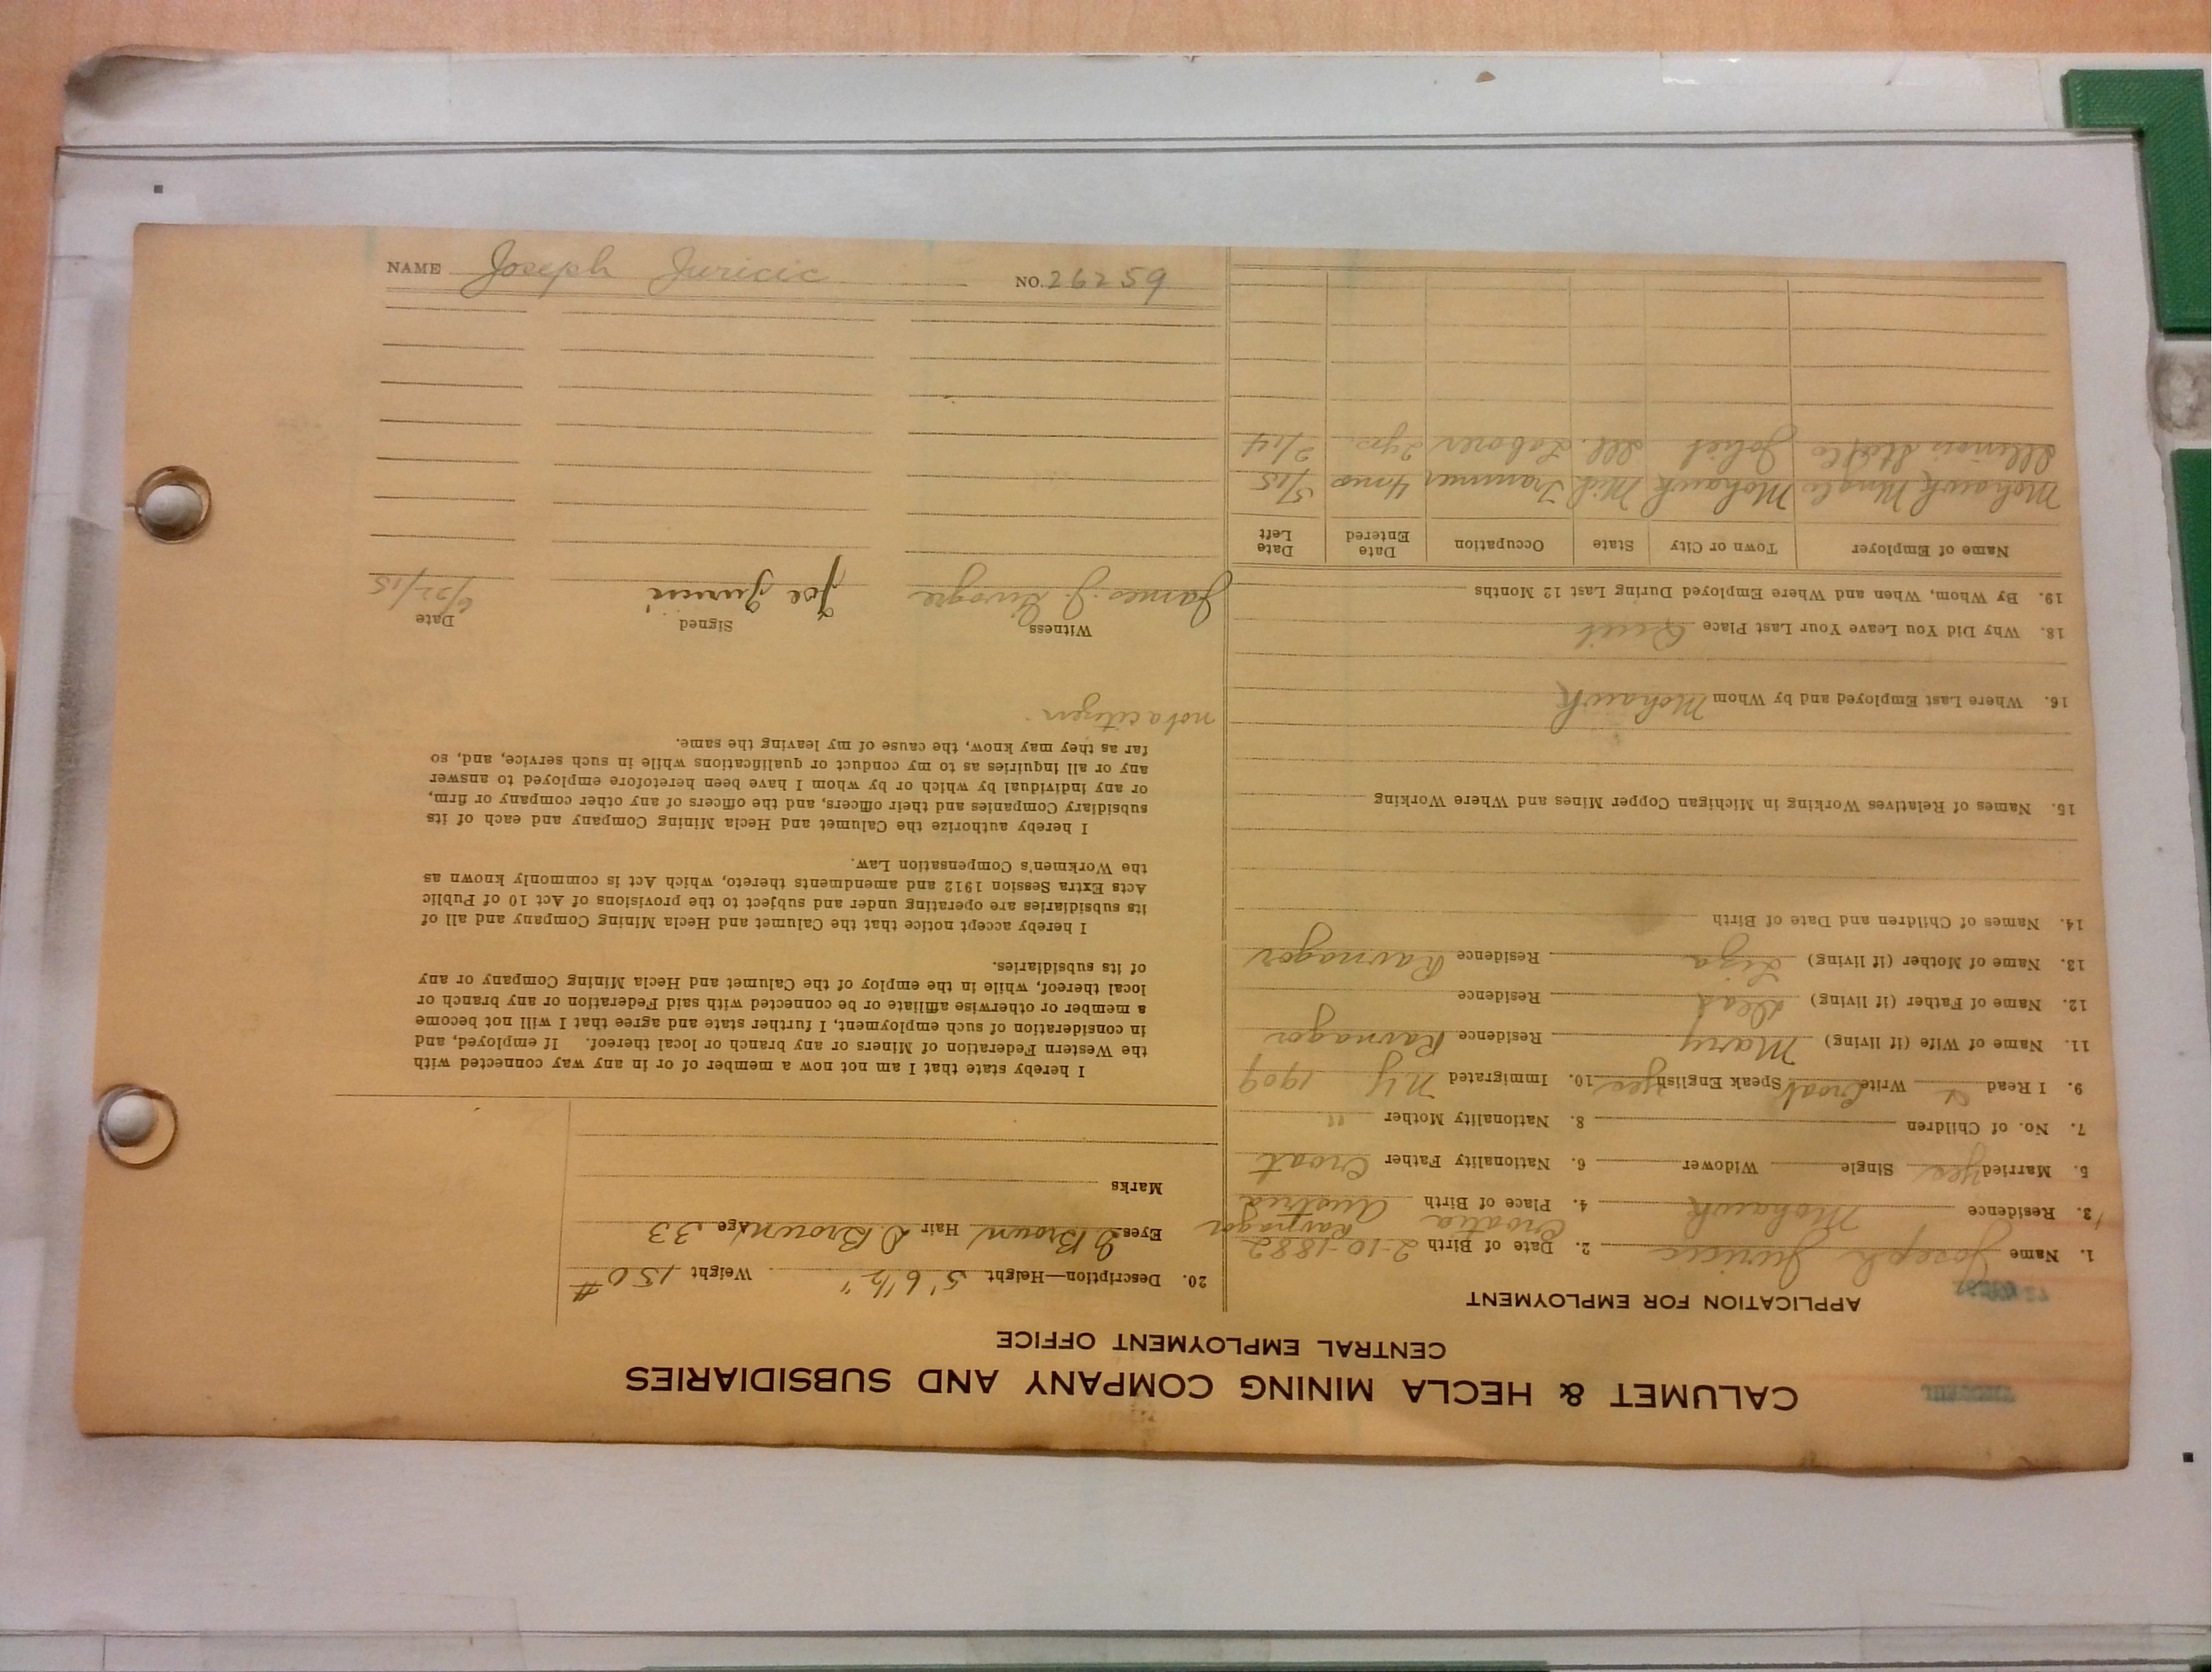 CALUMET & HECLA MINING COMPANY AND SUBSIDIARIES
CENTRAL EMPLOYMENT OFFICE
APPLICATION FOR EMPLOYMENT
1. Name Joseph Juricic 2. Date of Birth 2-10-1882
Croatia
3. Residence Mohawk 4. Place of Birth Austria
5. Married yes Single Widower 6. Nationality Father Croat
7. No. of Children 8. Nationality Mother "
9. I Read Write Croat Speak English yes 10. Immigrated N.Y. 1909
11. Name of Wife (if living) Mary Residence Ravnagor
12. Name of Father (if living) Dead Residence
13. Name of Mother (if living) Liza Residence Ravnagor
14. Names of Children and Date of Birth
15. Names of Relatives Working in Michigan Copper Mines and Where Working
16. Where Last Employed and by Whom Mohawk
18. Why Did You Leave Your Last Place Quit
19. By Whom, When and Where Employed During Last 12 Months
Name of Employer Town or City State Occupation Date Entered Date Left
Mohawk Mng Co Mohawk Mich Trammer 4 mos 5/15
Illinois Stl Co Joliet Ill. Laborer 2 yrs. 2/14
20. Description—Height 5' 6 1/2" Weight 150 #
Eyes D Brown Hair D. Brown Age 33
Marks
I hereby state that I am not now a member of or in any way connected with
the Western Federation of Miners or any branch or local thereof. If employed, and
in consideration of such employment, I further state and agree that I will not become
a member or otherwise affiliate or be connected with said Federation or any branch or
local thereof, while in the employ of the Calumet and Hecla Mining Company or any
of its subsidiaries.
I hereby accept notice that the Calumet and Hecla Mining Company and all of
its subsidiaries are operating under and subject to the provisions of Act 10 of Public
Acts Extra Session 1912 and amendments thereto, which Act is commonly known as
the Workmen's Compensation Law.
I hereby authorize the Calumet and Hecla Mining Company and each of its
subsidiary Companies and their officers, and the officers of any other company or firm,
or any individual by which or by whom I have been heretofore employed to answer
any or all inquiries as to my conduct or qualifications while in such service, and, so
far as they may know, the cause of my leaving the same.
not a citizen.
Witness Signed Date
James J. Joe Juricic 6/22/15
NAME Joseph Juricic NO. 26259